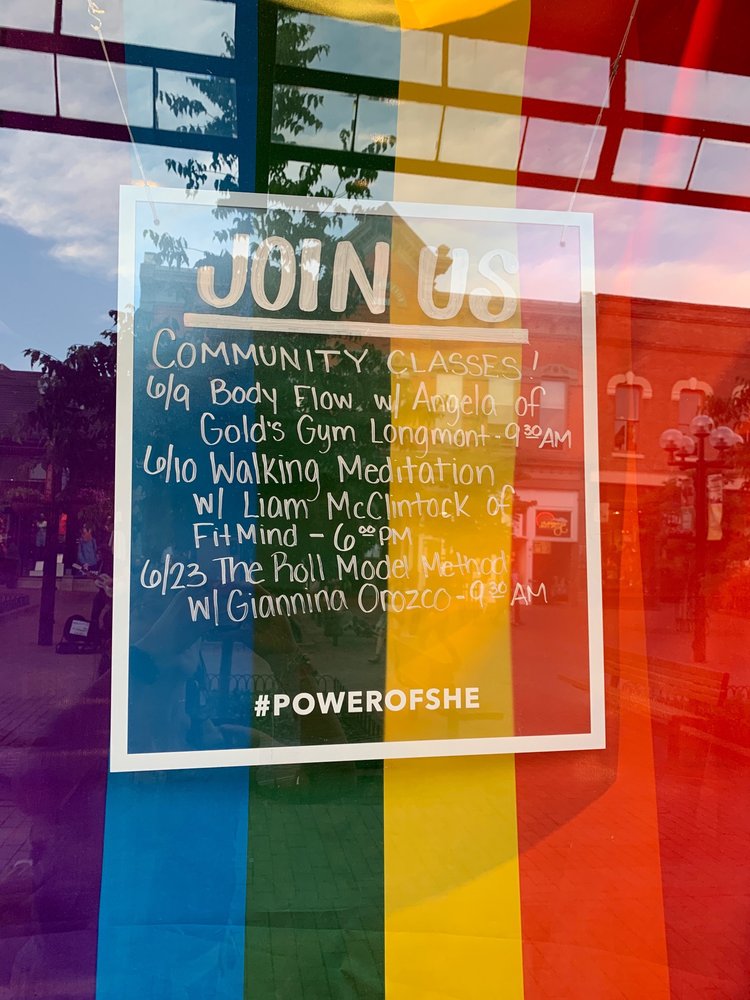 JOIN US
COMMUNITY CLASSES!
6/9 Body Flow w/ Angela of
Gold's Gym Longmont - 9 30 AM
6/10 Walking Meditation
w/ Liam McClintock of
FitMind - 6 00 PM
6/23 The Roll Model Method
w/ Giannina Orozco - 9 30 AM
#POWEROFSHE